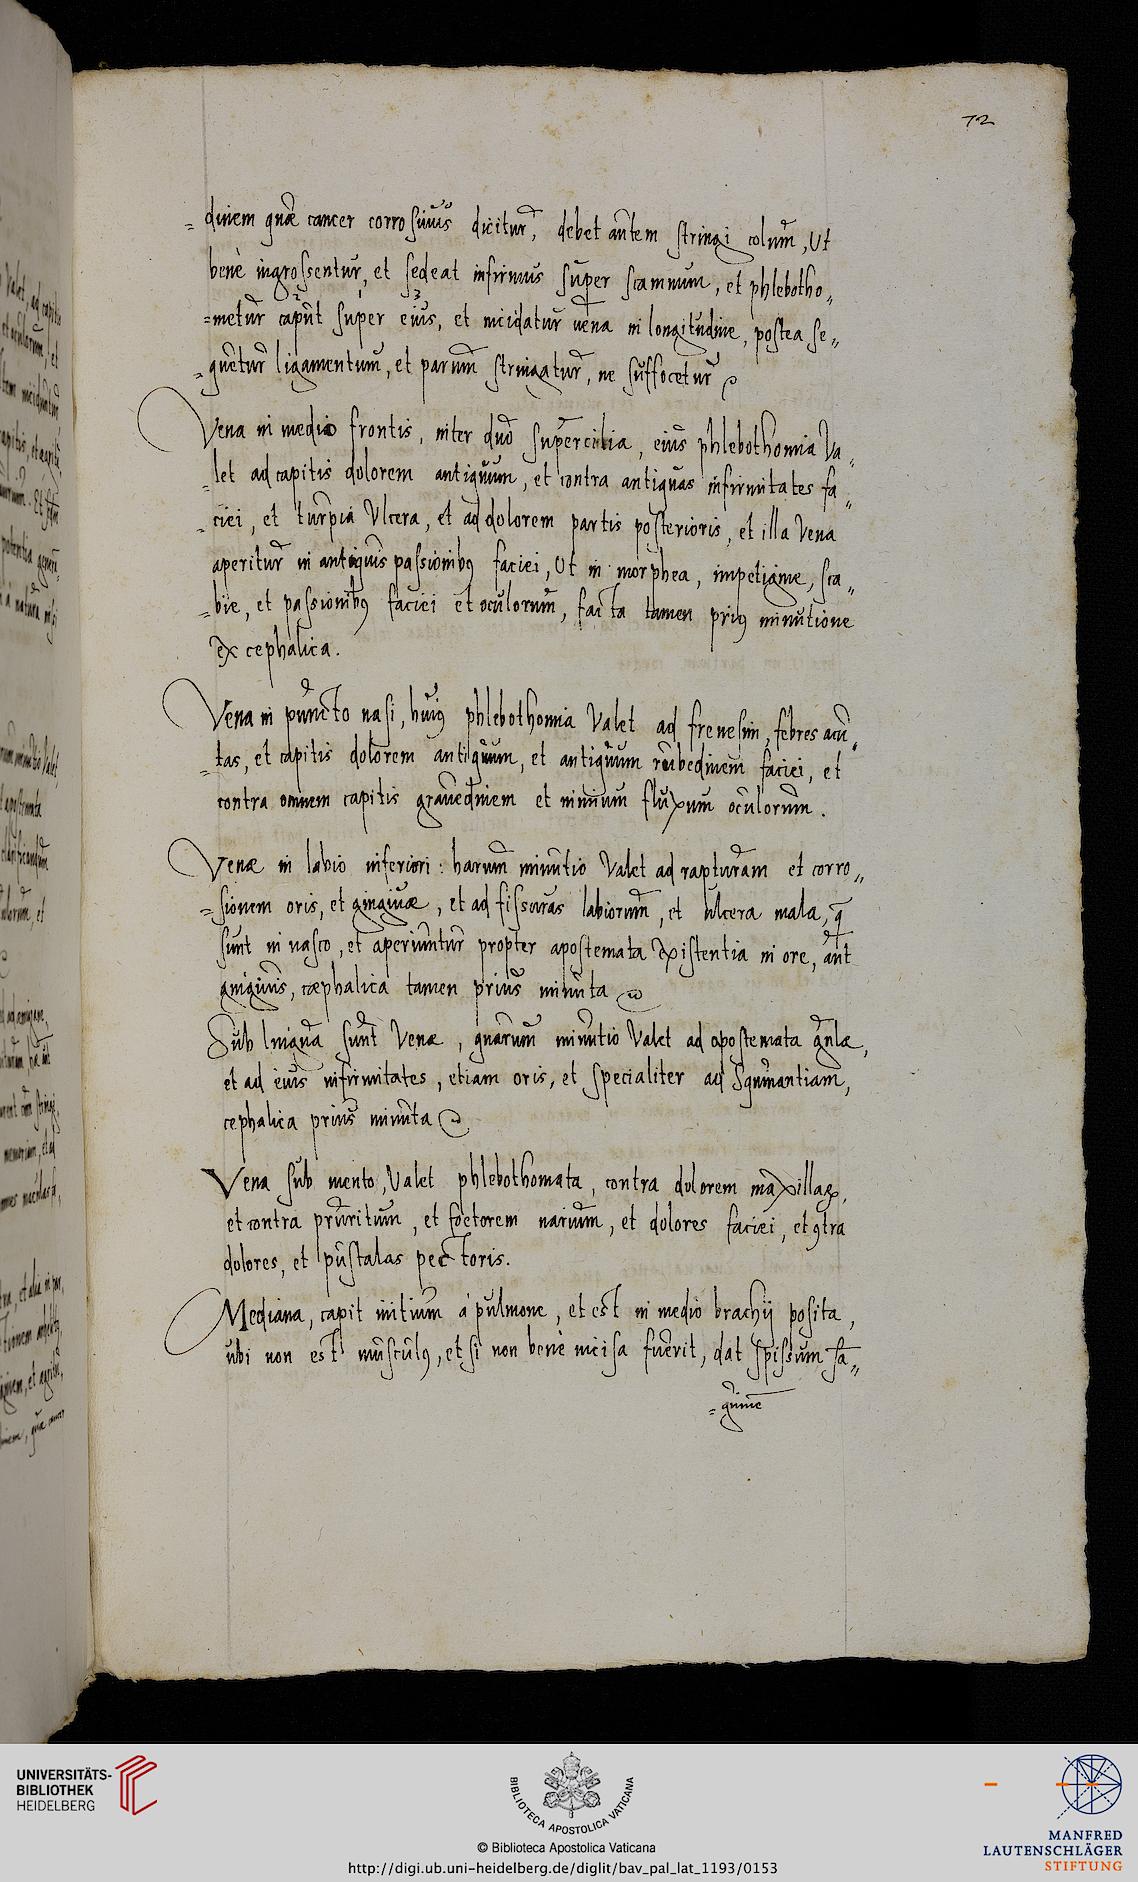 72
=dinem quæ cancer corrosiuus dicitur, debet autem stringi colum, Ut
bene ingrossentur, et sedeat infirmus super scamnum, et phlebotho„
=metur caput super eius, et incidatur uena in longitudine, postea se„
=quetur ligamentum, et parum stringatur, ne suffocetur
Vena in medio frontis, inter duo supercilia, eius phlebothomia Va„
=let ad capitis dolorem antiquum, et contra antiquas infirmitates fa„
=ciei, et turpia Ulcera, et ad dolorem partis posterioris, et illa Vena
aperitur in antiquis passionibꝰ faciei, Ut in morphea, impetigine, sca„
=bie, et passionibꝰ faciei et oculorum, facta tamen priꝰ minutione
ex cephalica.
Vena in puncto nasi, huiꝰ phlebothomia Valet ad frenesim, febres acu„
=tas, et capitis dolorem antiquum, et antiquum rubedinem faciei, et
contra omnem capitis grauedinem et nimium fluxum oculorum.
Venæ in labio inferiori: harum minutio Valet ad rapturam et corro„
=sionem oris, et gingiuæ, et ad fissuras labiorum, et Ulcera mala, q̄
sunt in nasco, et aperiuntur propter apostemata existentia in ore, aut
gingiuis, cæphalica tamen prius minuta
Sub lingua sunt Venæ, quarum minutio Valet ad apostemata gulæ,
et ad eius infirmitates, etiam oris, et specialiter ad Squinantiam,
cephalica prius minuta
Vena sub mento, Valet phlebothomata, contra dolorem maxillaꝝ,
et contra pruritum, et foetorem narium, et dolores faciei, et ꝯtra
dolores, et pustalas pectoris.
Mediana, capit initium à pulmone, et est in medio brachij posita,
ubi non est musculꝰ, et si non bene incisa fuerit, dat spissum sa„
=guinē
UNIVERSITÄTS-
BIBLIOTHEK
HEIDELBERG
BIBLIOTECA APOSTOLICA VATICANA
© Biblioteca Apostolica Vaticana
http://digi.ub.uni-heidelberg.de/diglit/bav_pal_lat_1193/0153
MANFRED
LAUTENSCHLÄGER
STIFTUNG